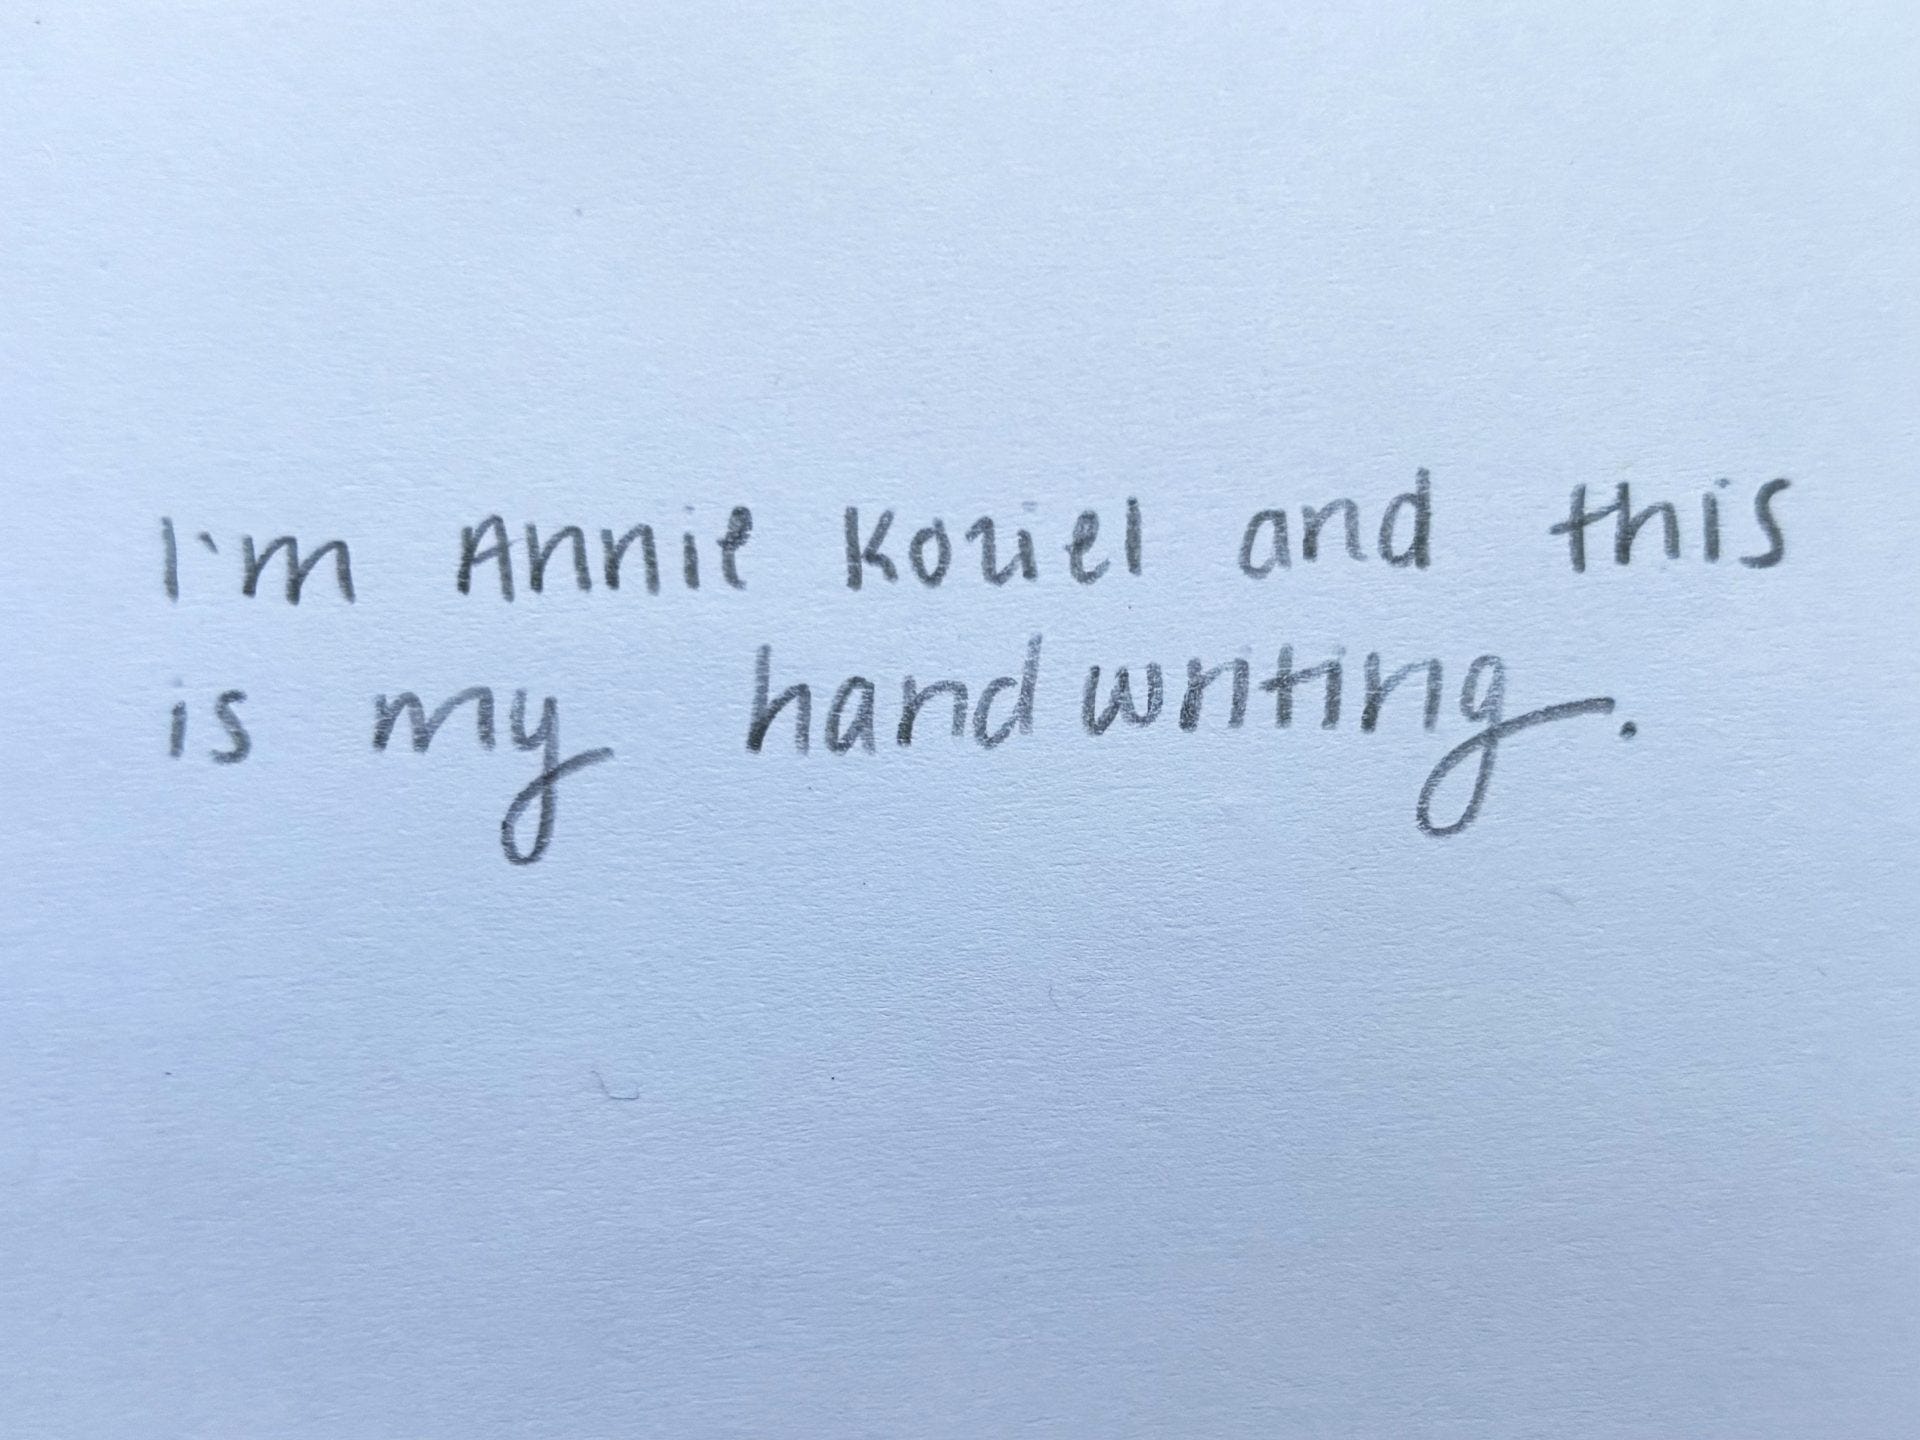 I'm Annie Koziel and this
is my handwriting.